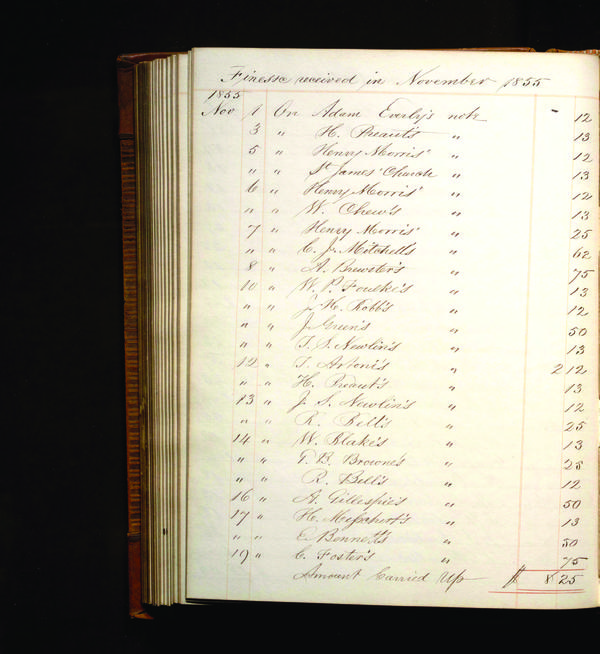 Finesse received in November 1855
1855
Nov 1 On Adam Everly's note - 12
3 " H. Preaut's " 13
5 " Henry Morris' " 12
" " St James' Church " 13
6 " Henry Morris' " 12
" " W. Chew's " 13
7 " Henry Morris' " 25
" " C. J. Mitchell's " 62
8 " A. Brewster's " 75
10 " W. P. Foulke's " 13
" " J. H. Robb's " 12
" " J. Green's " 50
" " T. S. Newlin's " 13
12 " T. Artoni's " 2 12
" " H. Preaut's " 13
13 " J. S. Newlin's " 12
" " R. Belt's " 25
14 " W. Blake's " 13
" " T. B. Browne's " 25
" " R. Bell's " 12
16 " A. Gillespie's " 50
17 " H. " 13
" " E. Bennett's " 50
19 " C. Foster's " 75
Amount Carried Up $ 8 25